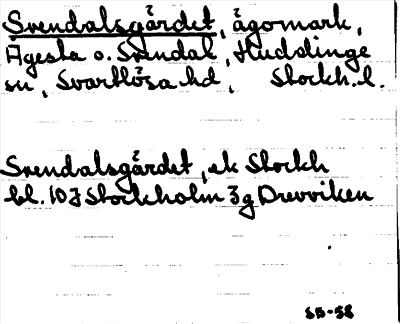 Svendalsgärdet, ägomark,
Ågesta o. Svendal, Huddinge
sn, Svartlösa hd, Stockh. l.
Svendalsgärdet, ek Stockh
bl. 10J Stockholm 3g Drevviken
SB-58